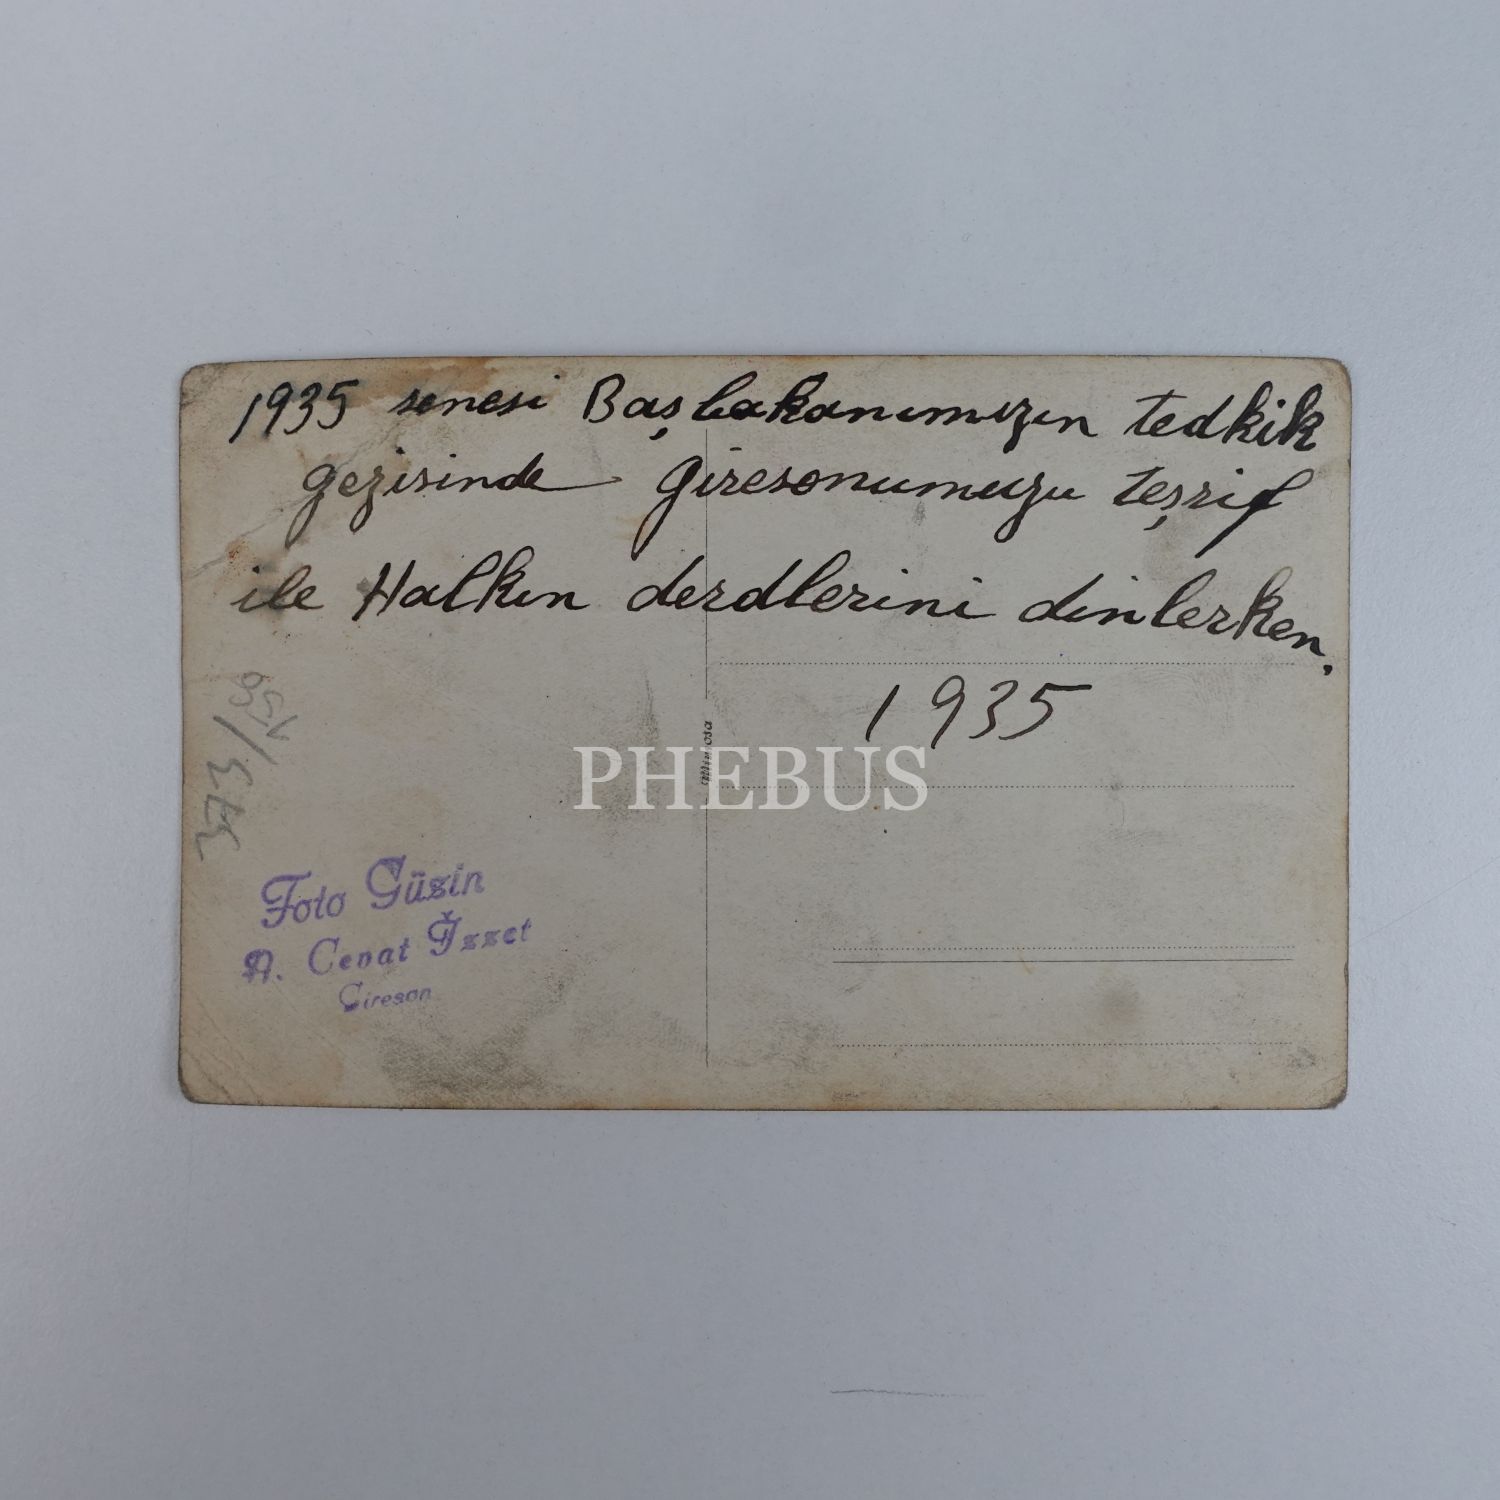 1935 senesi Başbakanımızın tedkik
gezisinde Giresonumuzu teşrif
ile Halkın derdlerini dinlerken.
1935
Mimosa
PHEBUS
Foto Güzin
A. Cevat İzzet
Gireson